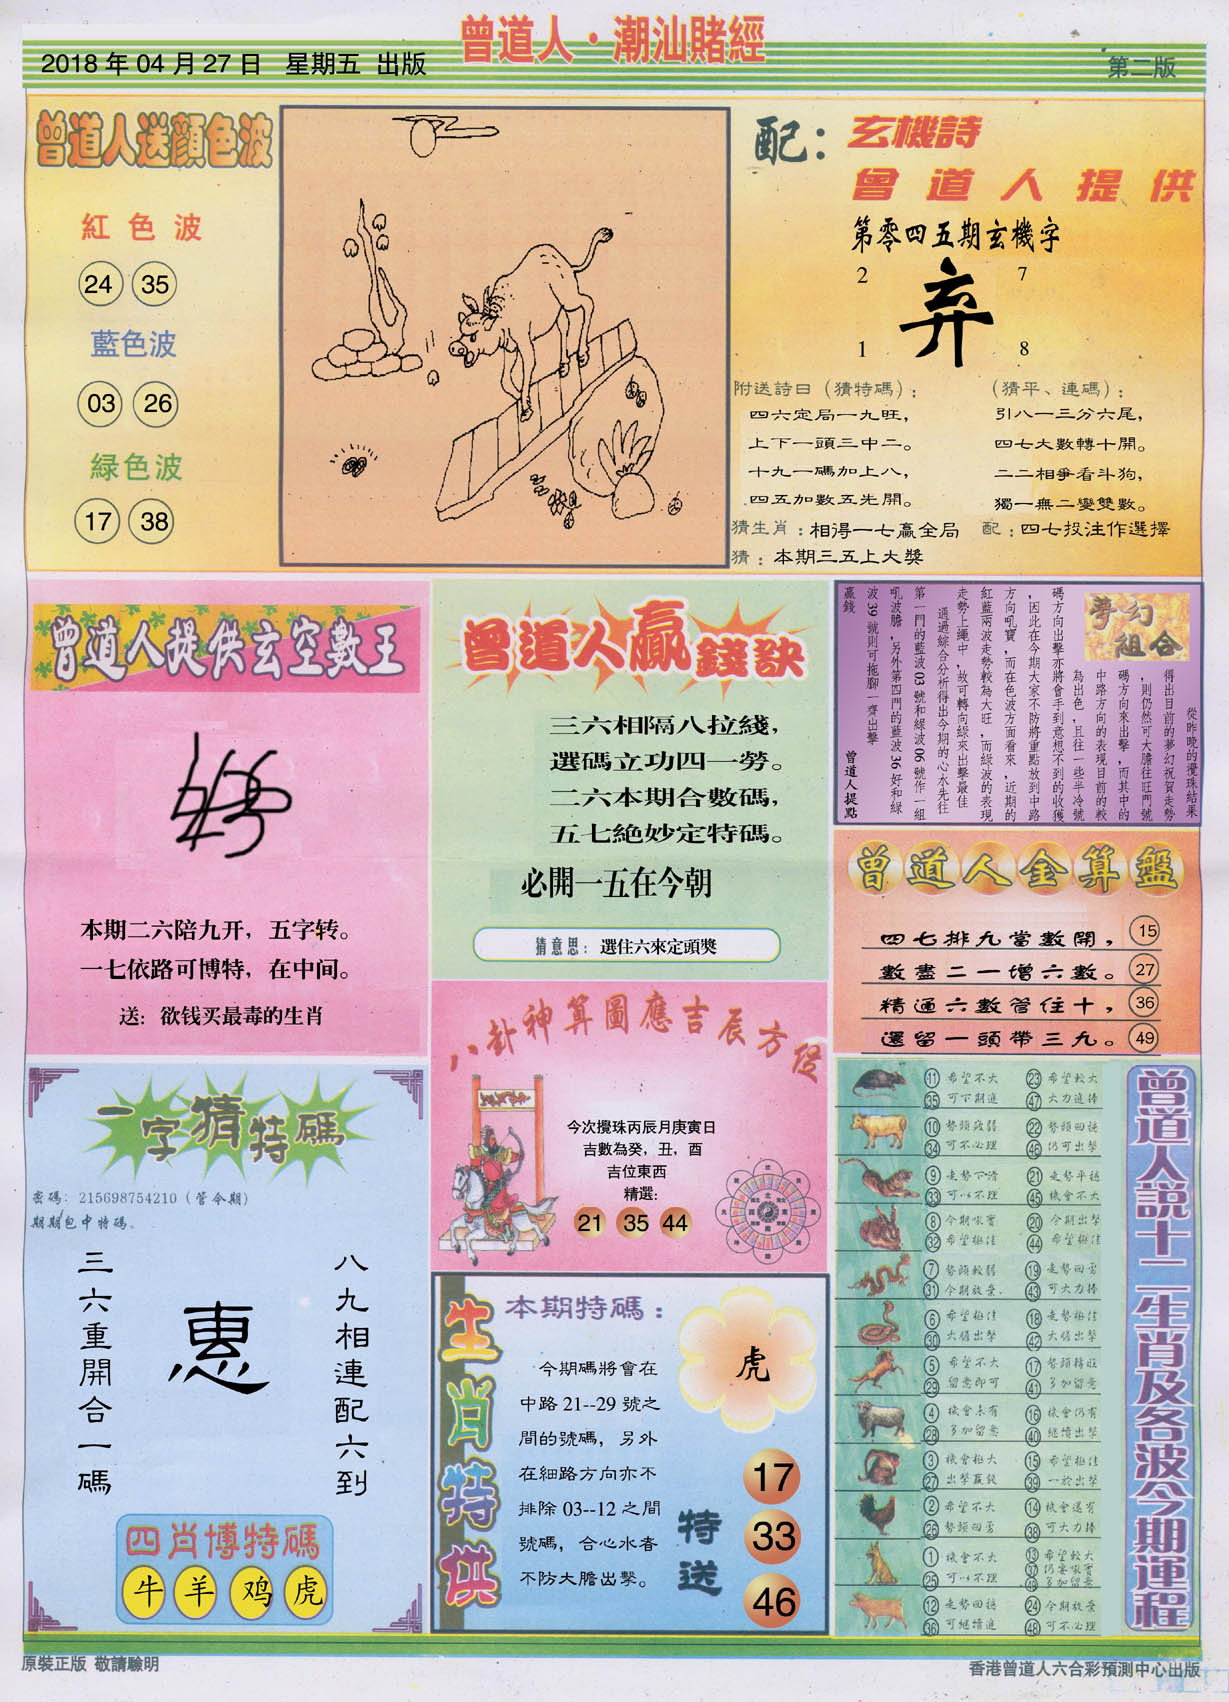 曾道人·潮汕賭經
2018 年 04 月 27 日 星期五 出版
第二版
曾道人送顏色波
紅色波
24 35
藍色波
03 26
緑色波
17 38
配：
玄機詩
曾道人提供
第零四五期玄機字
2 7
弃
1 8
附送詩日（猜特碼）：
四六定局一九旺，
上下一頭三中二。
十九一碼加上八，
四五加數五先開。
（猜平、連碼）：
引八一三分六尾，
四七大數轉十開。
二二相爭看斗狗，
獨一無二變雙數。
猜生肖：相得一七贏全局
配：四七投注作選擇
猜：本期三五上大獎
曾道人提供玄空數王
本期二六陪九开，五字转。
一七依路可博特，在中间。
送：欲钱买最毒的生肖
曾道人贏錢訣
三六相隔八拉綫，
選碼立功四一勞。
二六本期合數碼，
五七絕妙定特碼。
必開一五在今朝
猜意思：選住六來定頭獎
夢幻組合
從昨晚的攪珠結果
得出目前的夢幻祝賀走勢
，則仍然可大膽往旺門號
碼方向來出擊，而其中的
中路方向的表現目前的較
為出色，且往一些半冷號
碼方向出擊亦將會手到意想不到的收獲
，因此在今期大家不防將重點放到中路
方向吼寶，而在色波方面看來，近期的
紅藍兩波走勢較為大旺，而綠波的表現
走勢上繩中，故可轉向綠來出擊最佳
通過綜合分析得出今期的心水先往
第一門的藍波 03 號和綠波 06 號作一組
吼波膽，另外第四門的藍波 36 好和綠
波 39 號則可拖腳一齊出擊
贏錢
曾道人提點
曾道人金算盤
四七排九當數開， 15
數盡二一增六數。 27
精通六數管住十， 36
還留一頭帶三九。 49
八卦神算圖應吉辰方位
今次攪珠丙辰月庚寅日
吉數為癸，丑，酉
吉位東西
精選：
21 35 44
一字猜特碼
密碼：215698754210（管令期）
期期包中特碼。
八九相連配六到
惠
三六重開合一碼
四肖博特碼
牛 羊 鸡 虎
生肖特供
本期特碼：
虎
今期碼將會在
中路 21--29 號之
間的號碼，另外
在細路方向亦不
排除 03--12 之間
號碼，合心水者
不防大膽出擊。
特送
17
33
46
曾道人説十二生肖及各波今期運程
11 希望不大 23 希望較大
35 可下期進 47 大力進捧
10 勢頭疲弱 22 勢頭回穩
34 可不必理 46 仍可出擊
9 走勢下滑 21 走勢平穩
33 可以不理 45 機會不大
8 今期吼寶 20 今期出擊
32 希望極佳 44 希望極佳
7 勢頭較弱 19 走勢回勇
31 今期放棄 43 可大力捧
6 希望極佳 18 走勢極佳
30 大膽出擊 42 大膽出擊
5 希望不大 17 勢頭轉旺
29 留意即可 41 多加留意
4 機會未有 16 機會仍有
28 多加留意 40 繼續出擊
3 機會極大 15 希望極佳
27 出擊贏錢 39 一於出擊
2 希望不大 14 機會還有
26 勢頭回勇 38 可大力捧
1 機會不大 13 希望較大
25 可以不理 37 仍要吼寶
49 多加留意
12 走勢回穩 24 今期放棄
36 可繼續進 48 可不必理
原裝正版 敬請驗明
香港曾道人六合彩預測中心出版